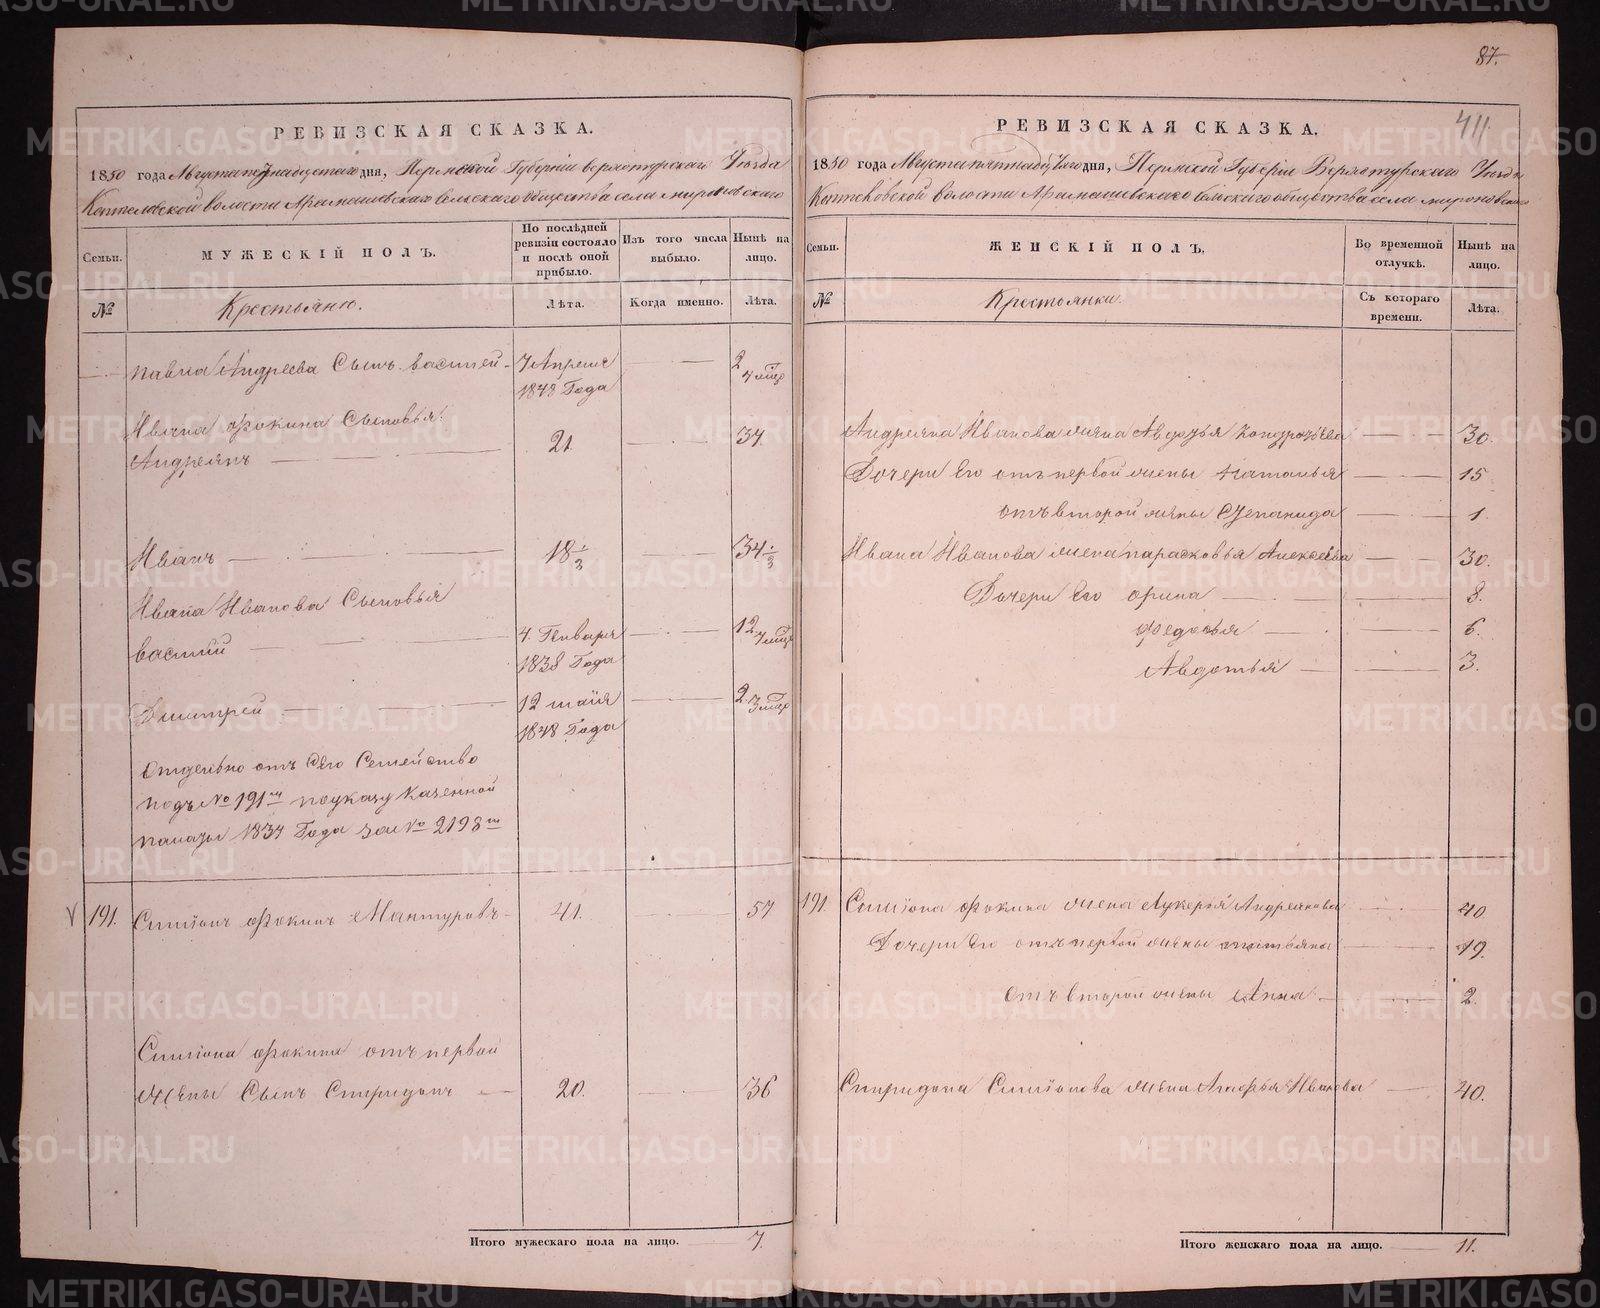 87.
411
РЕВИЗСКАЯ СКАЗКА.
1850 года Августа пятнадцатого дня, Пермской Губерніи верхотурскаго Уѣзда
Коптеловской волости Арамашевскаго сельскаго общества села мироновскаго
Семьи.
МУЖЕСКІЙ ПОЛЪ.
По послѣдней ревизіи состояло и послѣ оной прибыло.
Изъ того числа выбыло.
Нынѣ на лицо.
№
Крестьяню.
Лѣта.
Когда именно.
Лѣта.
павла Андреева Сынъ василей 7 Апреля 2
1848 Года 4 мѣц
Ивана Фокина Сыновья:
Андреянъ 21 37
Иванъ 18 1/3 34 1/3
Ивана Иванова Сыновья
васили 4. Генваря 12
1838 Года 7 мѣц
Дмитрей 12 маія 2 3 мѣц
1848 Года
отдельно отъ Сего Семейство
подъ № 191мъ по указу Казенной
палаты 1834 Года за № 2198м
191. Симіонъ Фокинъ Мантуровъ 41. 57
Симіона Фокина отъ первой
жены Сынъ Спиридонъ 20. 36
Итого мужескаго пола на лицо. 7.
РЕВИЗСКАЯ СКАЗКА.
1850 года Августа пятнадцатого дня, Пермской Губерніи Верхотурскаго Уѣзда
Коптеловской волости Арамашевскаго сельскаго общества села мироновскаго
Семьи.
ЖЕНСКІЙ ПОЛЪ.
Во временной отлучкѣ.
Нынѣ на лицо.
№
Крестьянки.
Съ котораго времени.
Лѣта.
Андреяна Иванова жена Авдотья Кондратьева 30.
Дочери Его отъ первой жены Наталья 15
отъ второй жены Степанида 1.
Ивана Иванова жена парасковья Алексѣева 30.
Дочери Его орина 8.
Федосья 6.
Авдотья 3.
191 Симіона Фокина жена Лукерья Андреянова 40
Дочери Его отъ первой жены 19.
отъ второй жены Анна 2.
Спиридона Симіонова жена Агафья Иванова 40.
Итого женскаго пола на лицо. 11.
METRIKI.GASO-URAL.RU